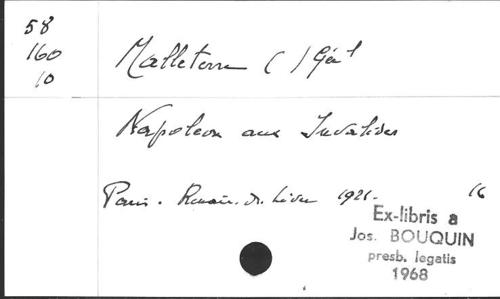 58
160
10
Malleterre ( ) Gén¹
Napoleon aux Invalides
Paris. Renais. du Livre 1921. 16
Ex-libris a
Jos. BOUQUIN
presb. legatis
1968